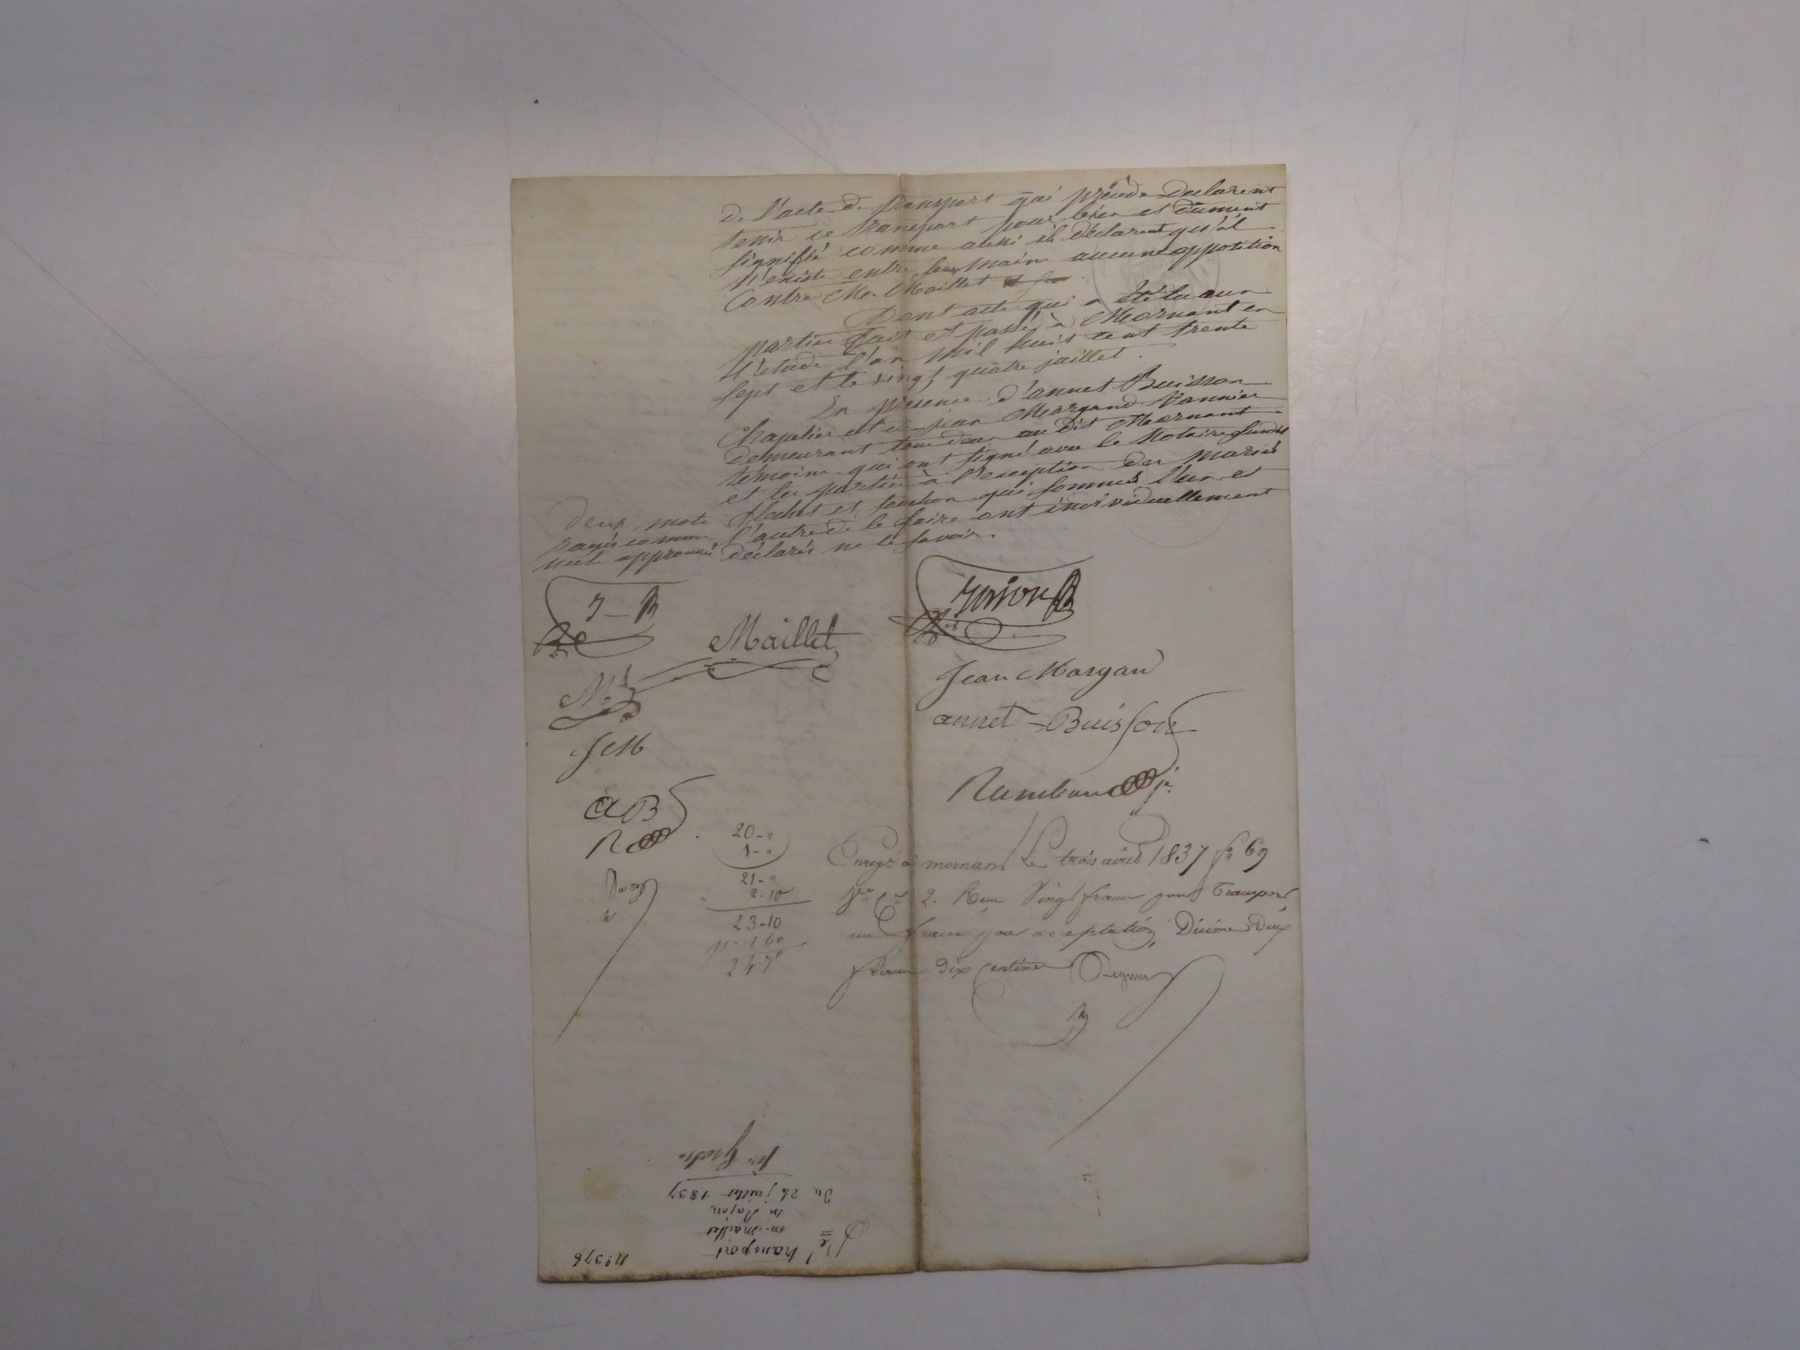 De l'acte de transport qui précède declarent
tenir ce transport pour bien et dûment
signifié comme aussi ils déclarent qu'il
n'existe entre leurs mains aucune opposition
Contre Mr Maillet
Dont acte qui a été lu aux
parties fait et passé à Mornant en
l'etude l'an mil huit cent trente
sept et le vingt quatre juillet.
En presence d'annet Buisson
Chapelier et de jean Margand Vannier
demeurant tous deux au dit Mornant
témoins qui ont signé avec le Notaire susdit
et les parties à l'exception des mariés
et qui sommés l'un et
l'autre de le faire ont individuellement
déclarés ne le savoir.
Deux mots
rayés comme
nul approuvé
J - B
Maillet
Jean Margan
JM
annet Buisson
aB
Rambaud jne
20 - "
1 - "
21 - "
2 - 10
23 - 10
1 60
24 - 70
Enregé à mornant le trois août 1837 fo 69
2. Reçu vingt francs pour Transport,
un franc pour acceptation, Décime deux
francs dix centimes
No 376
transport
mr maillet
Du 24 juillet 1837